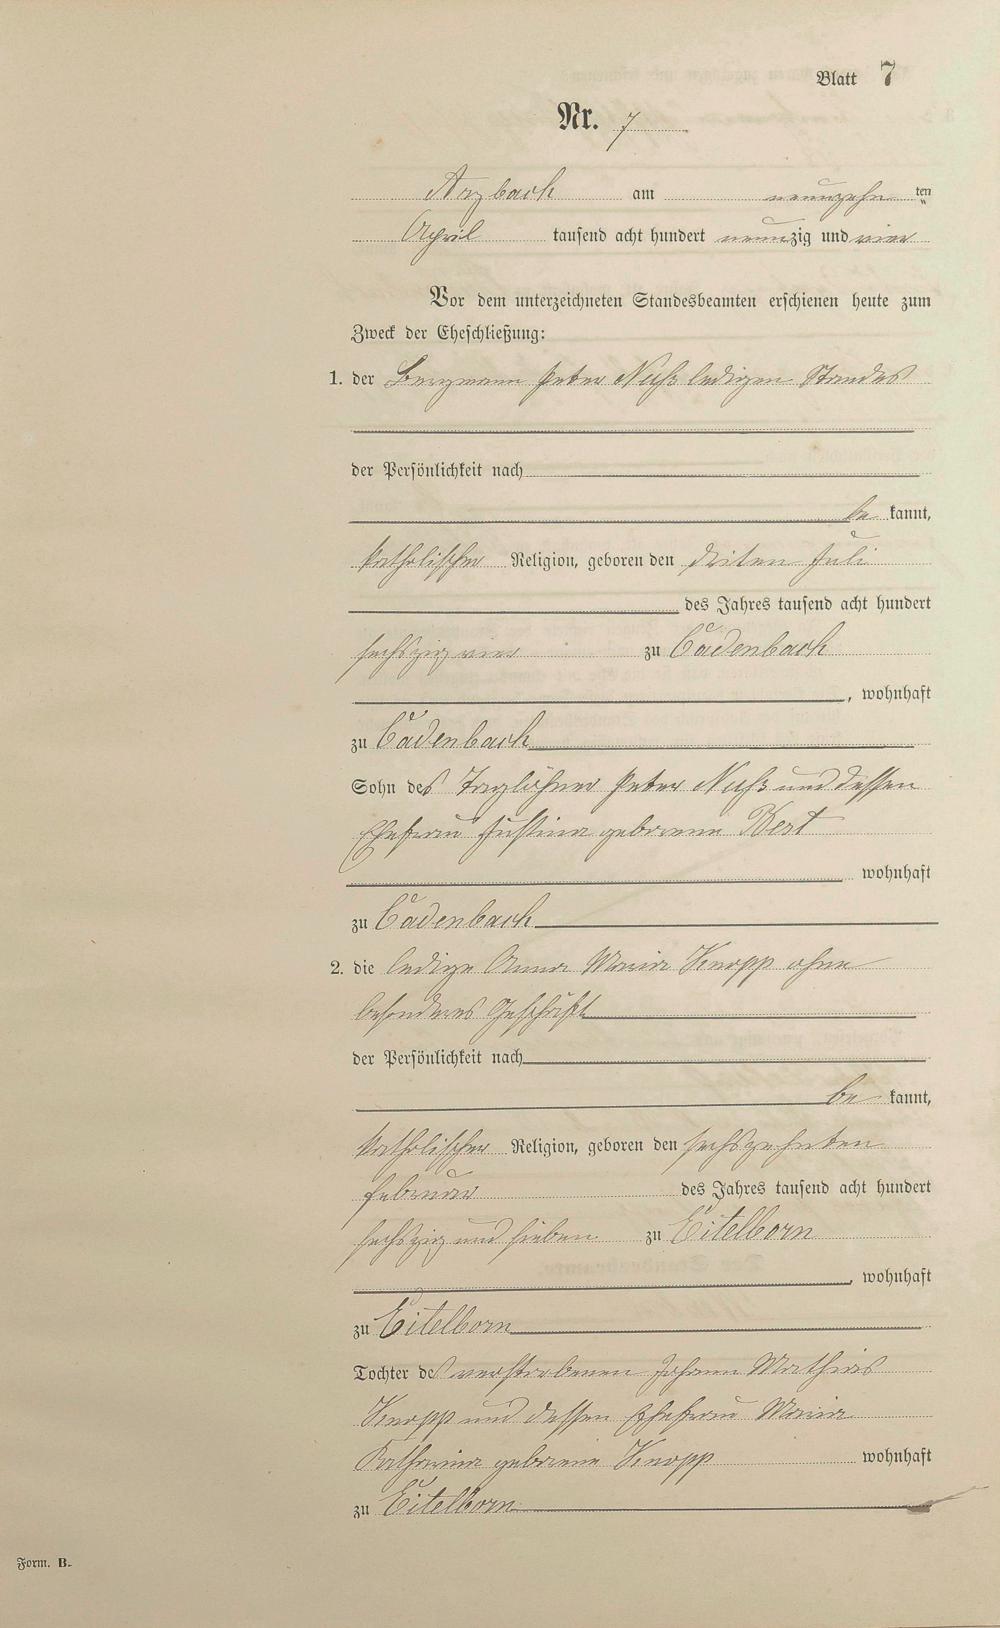 Blatt 7
Nr. 7
Arzbach am neunzehn ten
April tausend acht hundert neunzig und vier
Vor dem unterzeichneten Standesbeamten erschienen heute zum
Zweck der Eheschließung:
1. der Bergmann Peter Nuß ledigen Standes
der Persönlichkeit nach
be kannt,
katholischer Religion, geboren den driten Juli
des Jahres tausend acht hundert
sechszig vier zu Cadenbach
, wohnhaft
zu Cadenbach
Sohn des Taglöhner Peter Nuß und dessen
Ehefrau Justina geborene
wohnhaft
zu Cadenbach
2. die ledige Anna Maria Knopp ohne
besonderes Geschäft
der Persönlichkeit nach
be kannt,
katholischer Religion, geboren den sechszehnten
Februar des Jahres tausend acht hundert
sechszig und sieben zu Eitelborn
, wohnhaft
zu Eitelborn
Tochter des verstorbenen Johann Mathias
Knopp und dessen Ehefrau Maria
Katharina geborene Knopp wohnhaft
zu Eitelborn
Form. B.